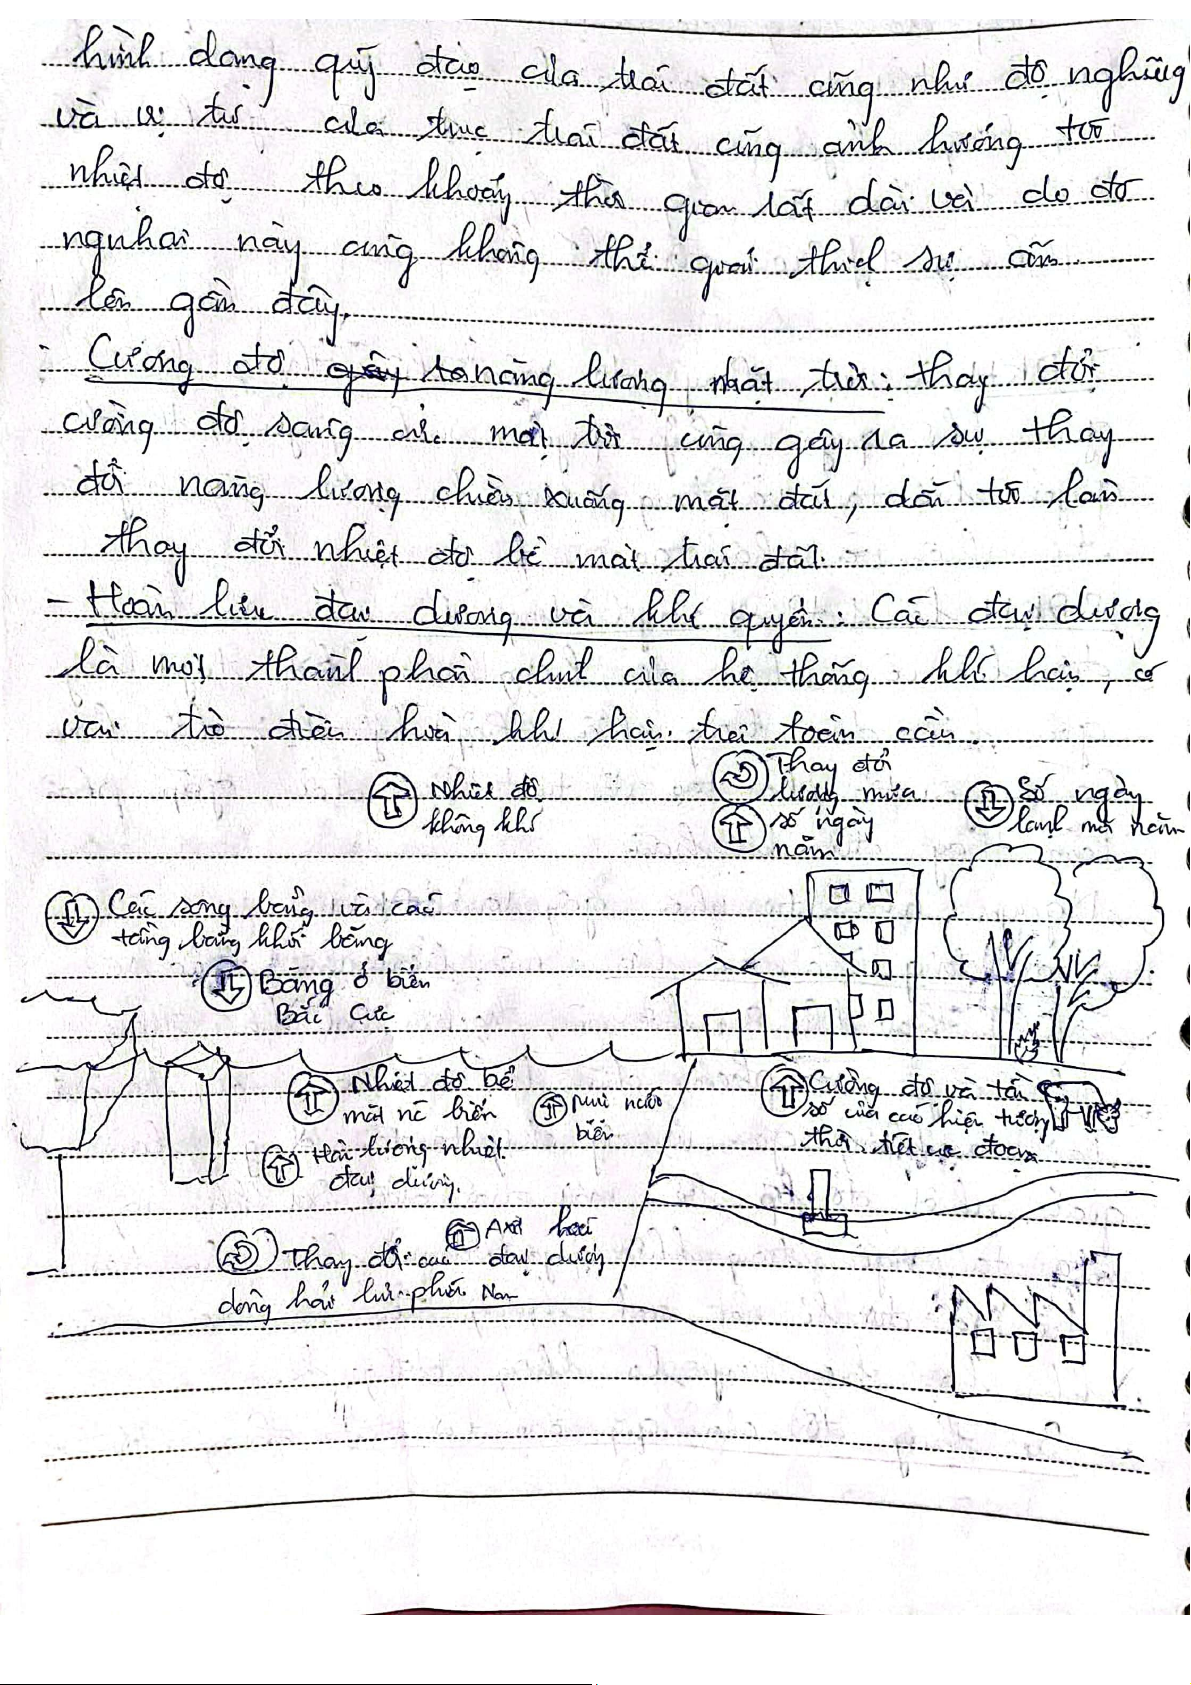 hình dạng quỹ đạo của trái đất cũng như độ nghiêng
và vị trí của trục trái đất cũng ảnh hưởng tới
nhiệt độ theo khoảng thời gian rất dài và do đó
này cũng không thể giải thích sự
lên gần đây.
Cường độ năng lượng mặt trời: thay đổi
cường độ sáng của mặt trời cũng gây ra sự thay
đổi năng lượng chiếu xuống mặt đất, dẫn tới làm
thay đổi nhiệt độ bề mặt trái đất.
- Hoàn lưu đại dương và khí quyển: Các đại dương
là một thành phần chính của hệ thống khí hậu, có
vai trò điều hoà khí hậu trên toàn cầu.
Thay đổi
lượng mưa
Nhiệt độ
không khí
Số ngày
lạnh mỗi năm
số ngày
năm
Các sông băng và các
tầng băng khối băng
Băng ở biển
Bắc Cực
Nhiệt độ bề
mặt nc biển
Mực nước
biển
Cường độ và tần
số của các hiện tượng
thời tiết cực đoan
Hàm lượng nhiệt
đại dương.
Axit hoá
đại dương
Thay đổi các
dòng hải lưu phía Nam